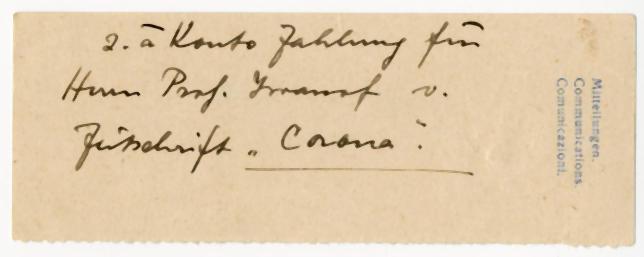 2. à Konto Zahlung für
Herrn Prof. Ivanof v.
Zeitschrift „Corona".
Mitteilungen.
Communications.
Comunicazioni.